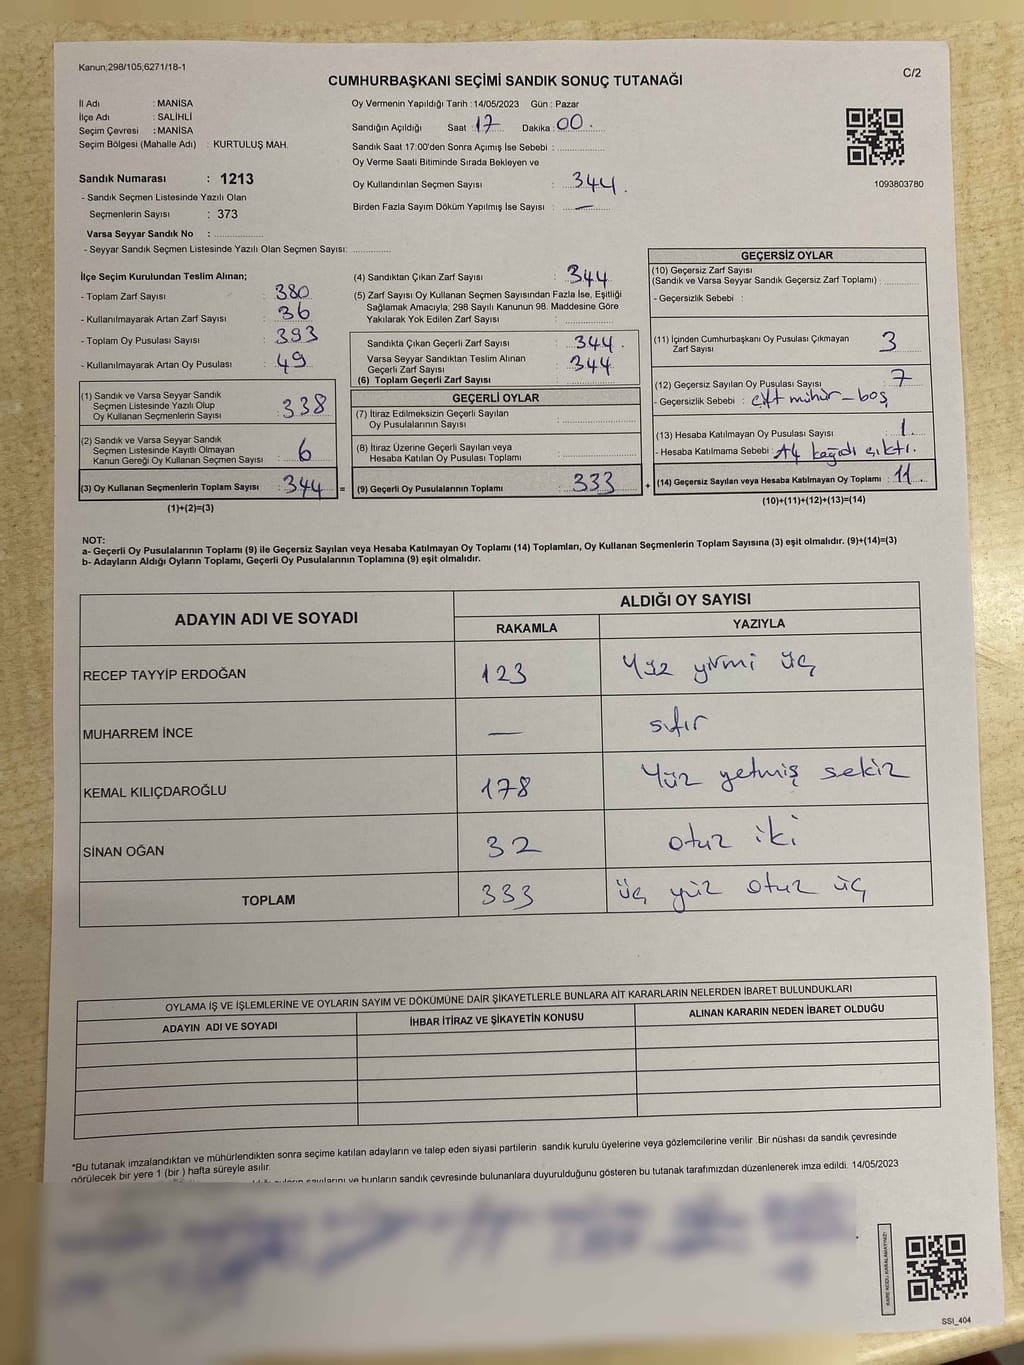 Kanun;298/105,6271/18-1
CUMHURBAŞKANI SEÇİMİ SANDIK SONUÇ TUTANAĞI
C/2
İl Adı : MANİSA
İlçe Adı : SALİHLİ
Seçim Çevresi : MANİSA
Seçim Bölgesi (Mahalle Adı) : KURTULUŞ MAH.
Sandık Numarası : 1213
- Sandık Seçmen Listesinde Yazılı Olan
Seçmenlerin Sayısı : 373
Varsa Seyyar Sandık No : ................
- Seyyar Sandık Seçmen Listesinde Yazılı Olan Seçmen Sayısı: ............
Oy Vermenin Yapıldığı Tarih :14/05/2023 Gün : Pazar
Sandığın Açıldığı Saat : 17 Dakika : 00.
Sandık Saat 17:00'den Sonra Açımış İse Sebebi : ................
Oy Verme Saati Bitiminde Sırada Bekleyen ve
Oy Kullandırılan Seçmen Sayısı : 344.
Birden Fazla Sayım Döküm Yapılmış İse Sayısı : —
1093803780
İlçe Seçim Kurulundan Teslim Alınan;
- Toplam Zarf Sayısı : 380
- Kullanılmayarak Artan Zarf Sayısı : 36
- Toplam Oy Pusulası Sayısı : 393
- Kullanılmayarak Artan Oy Pusulası : 49
(1) Sandık ve Varsa Seyyar Sandık
Seçmen Listesinde Yazılı Olup
Oy Kullanan Seçmenlerin Sayısı : 338
(2) Sandık ve Varsa Seyyar Sandık
Seçmen Listesinde Kayıtlı Olmayan
Kanun Gereği Oy Kullanan Seçmen Sayısı : 6
(3) Oy Kullanan Seçmenlerin Toplam Sayısı : 344 =
(1)+(2)=(3)
(4) Sandıktan Çıkan Zarf Sayısı : 344
(5) Zarf Sayısı Oy Kullanan Seçmen Sayısından Fazla İse, Eşitliği
Sağlamak Amacıyla; 298 Sayılı Kanunun 98. Maddesine Göre
Yakılarak Yok Edilen Zarf Sayısı : ................
Sandıkta Çıkan Geçerli Zarf Sayısı : 344.
Varsa Seyyar Sandıktan Teslim Alınan
Geçerli Zarf Sayısı : 344
(6) Toplam Geçerli Zarf Sayısı : ................
GEÇERLİ OYLAR
(7) İtiraz Edilmeksizin Geçerli Sayılan
Oy Pusulalarının Sayısı : ................
(8) İtiraz Üzerine Geçerli Sayılan veya
Hesaba Katılan Oy Pusulası Toplamı : ................
(9) Geçerli Oy Pusulalarının Toplamı : 333 +
GEÇERSİZ OYLAR
(10) Geçersiz Zarf Sayısı
(Sandık ve Varsa Seyyar Sandık Geçersiz Zarf Toplamı) : ............
- Geçersizlik Sebebi :
(11) İçinden Cumhurbaşkanı Oy Pusulası Çıkmayan
Zarf Sayısı : 3
(12) Geçersiz Sayılan Oy Pusulası Sayısı : 7
- Geçersizlik Sebebi : çift mühür – boş
(13) Hesaba Katılmayan Oy Pusulası Sayısı : 1.
- Hesaba Katılmama Sebebi : A4 kağıdı çıktı.
(14) Geçersiz Sayılan veya Hesaba Katılmayan Oy Toplamı : 11.
(10)+(11)+(12)+(13)=(14)
NOT:
a- Geçerli Oy Pusulalarının Toplamı (9) ile Geçersiz Sayılan veya Hesaba Katılmayan Oy Toplamı (14) Toplamları, Oy Kullanan Seçmenlerin Toplam Sayısına (3) eşit olmalıdır. (9)+(14)=(3)
b- Adayların Aldığı Oyların Toplamı, Geçerli Oy Pusulalarının Toplamına (9) eşit olmalıdır.
ADAYIN ADI VE SOYADI
ALDIĞI OY SAYISI
RAKAMLA YAZIYLA
RECEP TAYYİP ERDOĞAN 123 Yüz yirmi üç
MUHARREM İNCE — sıfır
KEMAL KILIÇDAROĞLU 178 Yüz yetmiş sekiz
SİNAN OĞAN 32 otuz iki
TOPLAM 333 üç yüz otuz üç
OYLAMA İŞ VE İŞLEMLERİNE VE OYLARIN SAYIM VE DÖKÜMÜNE DAİR ŞİKAYETLERLE BUNLARA AİT KARARLARIN NELERDEN İBARET BULUNDUKLARI
ADAYIN ADI VE SOYADI İHBAR İTİRAZ VE ŞİKAYETİN KONUSU ALINAN KARARIN NEDEN İBARET OLDUĞU
*Bu tutanak imzalandıktan ve mühürlendikten sonra seçime katılan adayların ve talep eden siyasi partilerin sandık kurulu üyelerine veya gözlemcilerine verilir .Bir nüshası da sandık çevresinde
görülecek bir yere 1 (bir ) hafta süreyle asılır.
sayılarını ve bunların sandık çevresinde bulunanlara duyurulduğunu gösteren bu tutanak tarafımızdan düzenlenerek imza edildi. 14/05/2023
KARE KODU KARALAMAYINIZ!
SSI_404